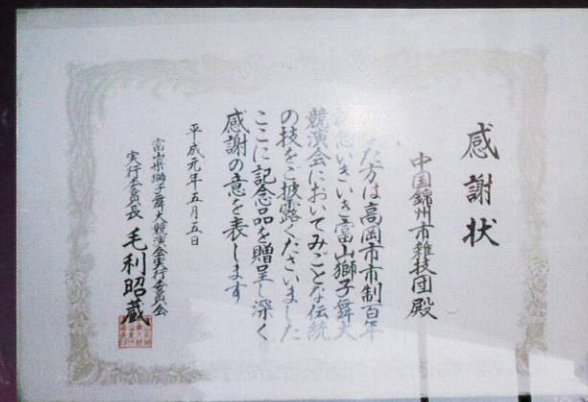 感謝状
中国錦州市雑技団殿
あなた方は高岡市市制百年
記念いきいき富山獅子舞大
競演会においてみごとな伝統
の技をご披露くださいました
ここに記念品を贈呈し深く
感謝の意を表します
平成元年五月五日
富山県獅子舞大競演会実行委員会
実行委員長 毛利昭蔵